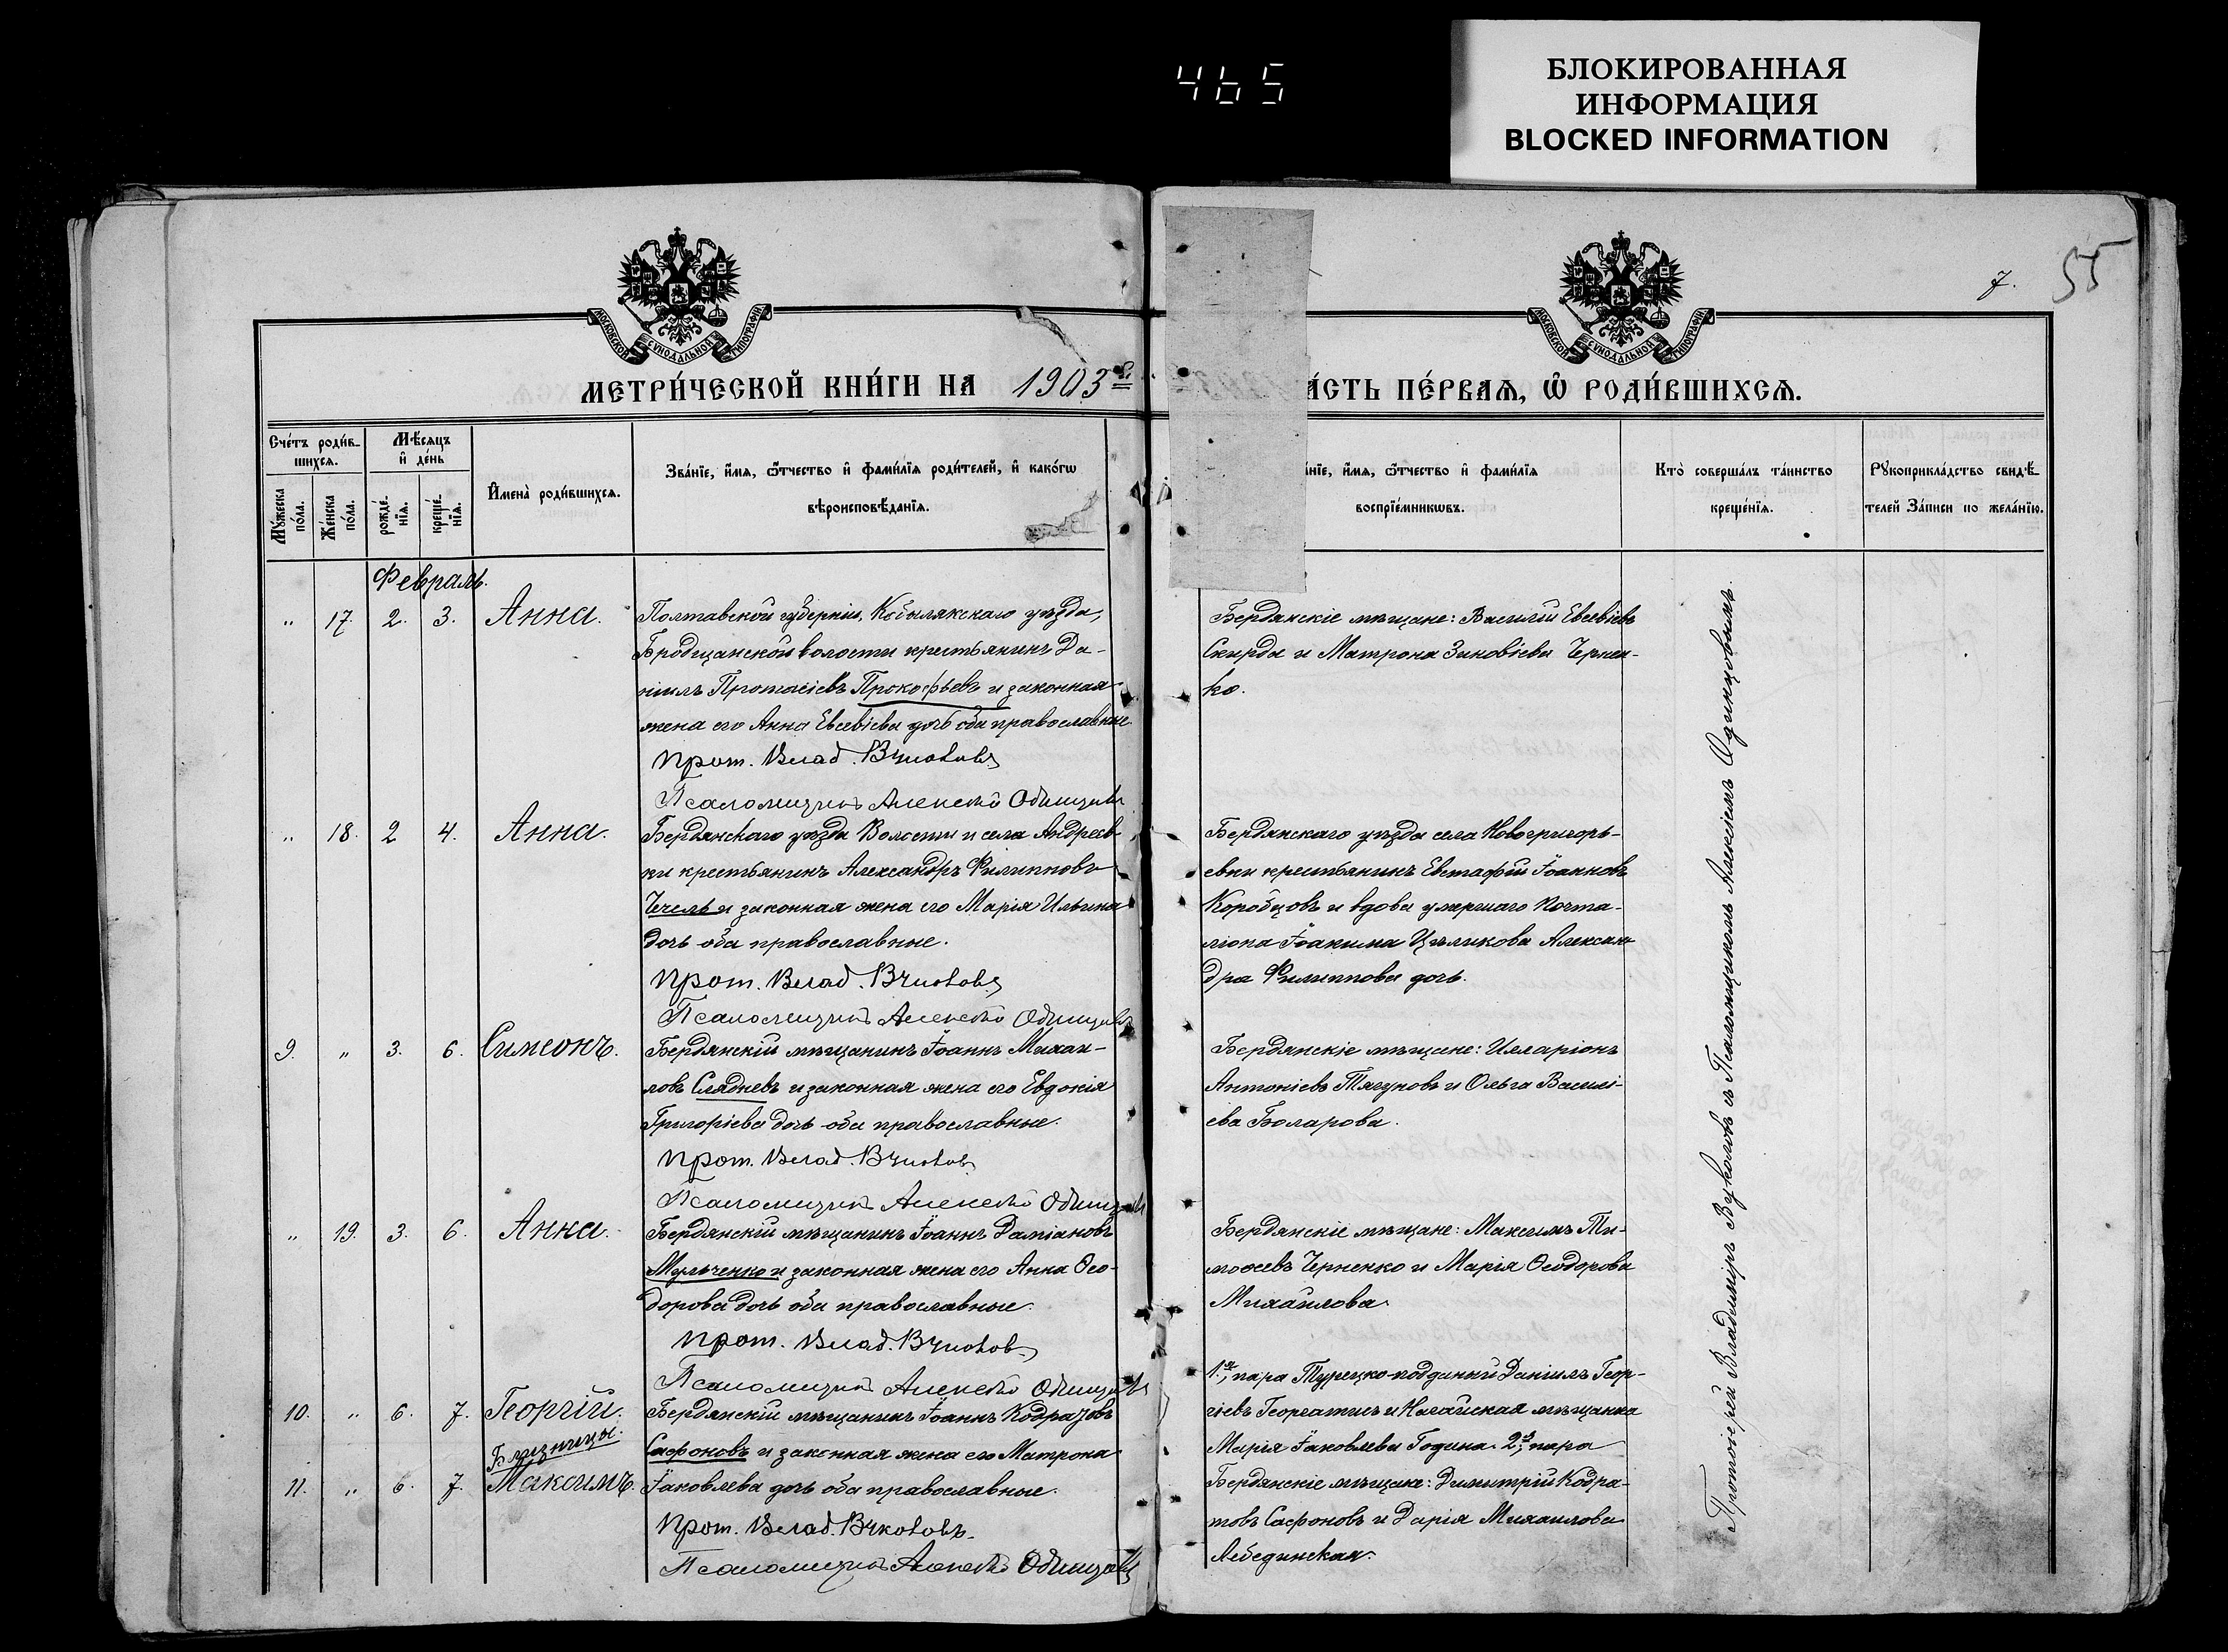 465
БЛОКИРОВАННАЯ
ИНФОРМАЦИЯ
BLOCKED INFORMATION
7.
55
МОСКОВСКОЙ СѴНОДАЛЬНОЙ ТИПОГРАФІИ
МОСКОВСКОЙ СѴНОДАЛЬНОЙ ТИПОГРАФІИ
МЕТРИ́ЧЕСКОЙ КНИ́ГИ НА 1903
А́СТЬ ПЕ́РВАѦ, Ѿ РОДИ́ВШИХСѦ.
Сче́тъ роди́в-
шихсѧ.
Мꙋ́жеска
по́ла.
Же́нска
по́ла.
Мѣ́сѧцъ
и҆ де́нь
рожде́-
нїѧ.
креще́-
нїѧ.
И҆мена̀ роди́вшихсѧ.
Зва́нїе, и҆́мѧ, ѻ҆́тчество и҆ фами́лїѧ роди́телей, и҆ како́гѡ
вѣроисповѣ́данїѧ.
а́нїе, и҆́мѧ, ѻ҆́тчество и҆ фами́лїѧ
воспрїе́мникѡвъ.
Кто̀ соверша́лъ та́инство
креще́нїѧ.
Рꙋкоприкла́дство свидѣ́-
телей За́писи по жела́нїю.
Февраль.
" 17. 2. 3. Анна.
Полтавской губерніи, Кобылякскаго уѣзда,
Бродщанской волости крестьянинъ Да-
ніилъ Протасіевъ Прокофьевъ и законная
жена его Анна Евсевіева дочь оба православные
Прот. Влад. Вуколовъ
Псаломщикъ Алексѣй Одинцовъ
Бердянскіе мѣщане: Василій Евсевіевъ
Скирда и Матрона Зиновіева Чернен-
ко.
" 18. 2 4. Анна.
Бердянскаго уѣзда Волости и села Андреев-
ки крестьянинъ Александръ Филипповъ
Чечель и законная жена его Марія Ильина
дочь оба православные.
Прот. Влад. Вуколовъ
Псаломщикъ Алексѣй Одинцовъ
Бердянскаго уѣзда села Новогригорь-
евки крестьянинъ Евстафій Іоанновъ
Коробцовъ и вдова умершаго Почта-
ліона Іоакима Цѣликова Алексан-
дра Филиппова дочь.
9. " 3. 6. Симеонъ.
Бердянскій мѣщанинъ Іоаннъ Михаи-
ловъ Сляднев и законная жена его Евдокія
Григоріева дочь оба православные.
Прот. Влад. Вуколовъ
Псаломщикъ Алексѣй Одинцовъ
Бердянскіе мѣщане: Иларіонъ
Антоніевъ Тягуновъ и Ольга Василі-
ева Боларова.
" 19. 3. 6. Анна.
Бердянскій мѣщанинъ Іоаннъ Даміановъ
Мульченко и законная жена его Анна Ѳео-
дорова дочь оба православные.
Прот. Влад. Вуколовъ
Псаломщикъ Алексѣй Одинцовъ
Бердянскіе мѣщане: Максимъ Ти-
моѳеевъ Черненко и Марія Ѳеодорова
Михайлова.
10. " 6. 7. Георгій.
Близнецы.
11. " 6. 7. Максимъ.
Бердянскій мѣщанинъ Іоаннъ Кодратовъ
Сафоновъ и законная жена его Матрона
Іаковлева дочь оба православные.
Прот. Влад. Вуколовъ.
Псаломщикъ Алексѣй Одинцовъ
1я, пара Турецко-подданный Даніилъ Геор-
гіевъ Георгатисъ и Ногайская мѣщанка
Марія Іаковлева Година. 2я, пара
Бердянскіе мѣщане: Димитрій Кодра-
товъ Сафоновъ и Дарія Михаилова
Лебединская.
Протоіерей Владиміръ Вуколовъ съ Псаломщикомъ Алексіемъ Одинцовымъ.